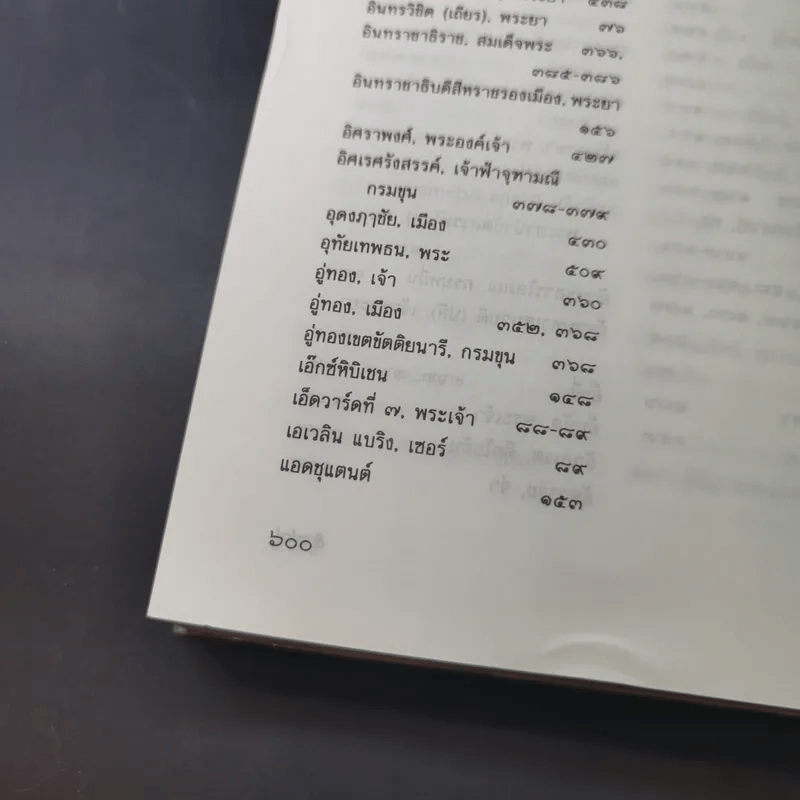 ๕๓๘
อินทรวิชิต (เถียร), พระยา ๗๖
อินทราชาธิราช, สมเด็จพระ ๓๖๖,
๓๘๕-๓๘๖
อินทราชาธิบดีสีหราชรองเมือง, พระยา
๑๕๖
อิศราพงศ์, พระองค์เจ้า ๔๒๗
อิศเรศรังสรรค์, เจ้าฟ้าจุฑามณี
กรมขุน ๓๗๘-๓๗๙
อุดงฦๅชัย, เมือง ๔๓๐
อุทัยเทพธน, พระ ๕๐๙
อู่ทอง, เจ้า ๓๖๐
อู่ทอง, เมือง ๓๕๒, ๓๖๘
อู่ทองเขตขัตติยนารี, กรมขุน ๓๖๘
เอ๊กซ์หิบิเชน ๑๔๘
เอ็ดวาร์ดที่ ๗, พระเจ้า ๘๘-๘๙
เอเวลิน แบริง, เซอร์ ๘๙
แอดชุแตนต์ ๑๕๓
๖๐๐